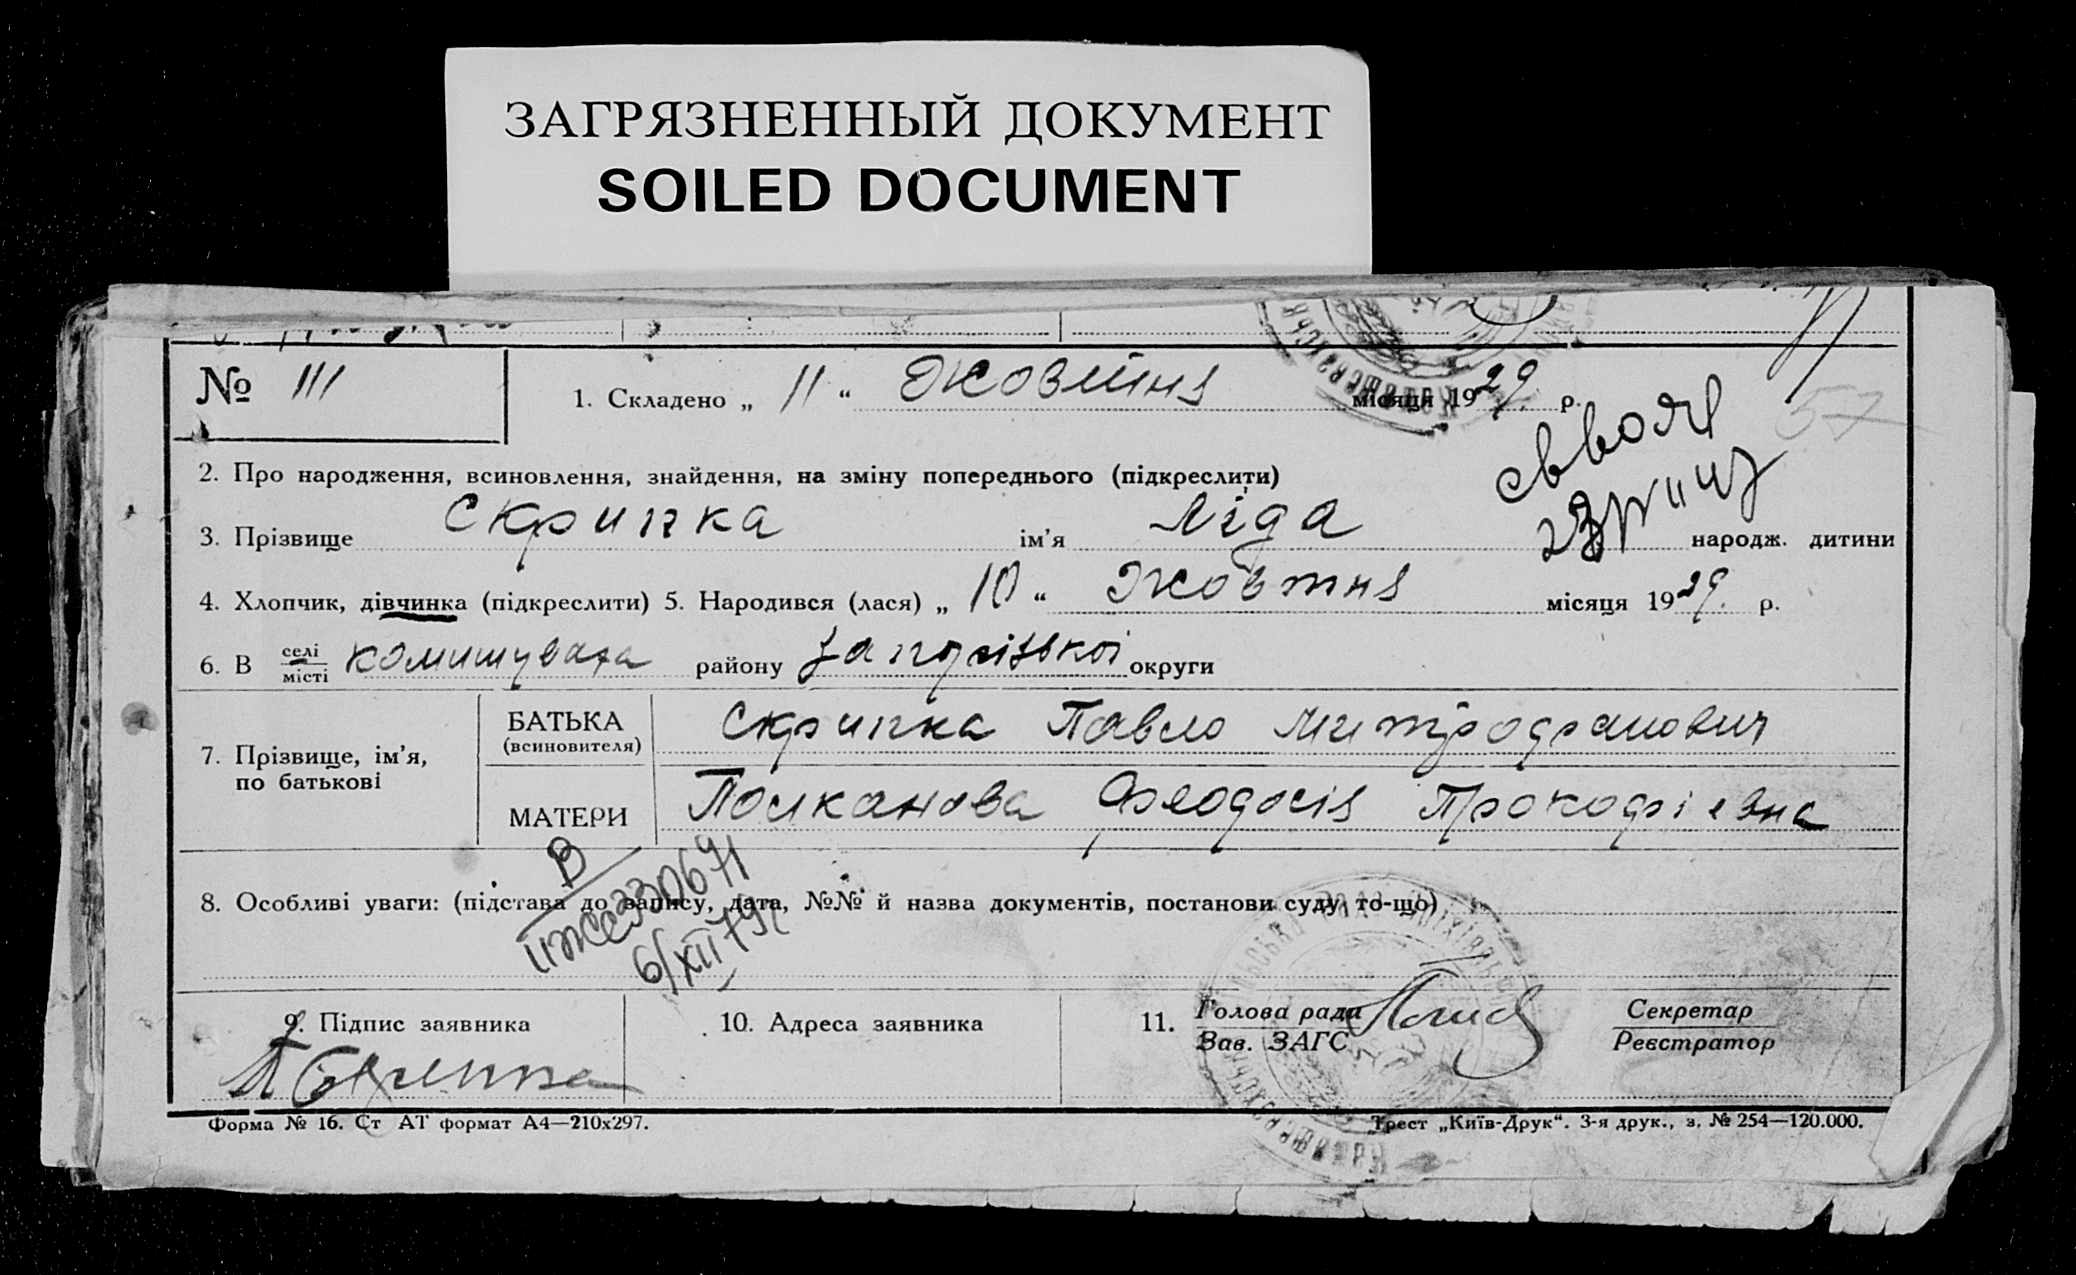 ЗАГРЯЗНЕННЫЙ ДОКУМЕНТ
SOILED DOCUMENT
№ 111
1. Складено „ 11 “ Жовтня місяця 1929. р.
57
2. Про народження, всиновлення, знайдення, на зміну попереднього (підкреслити)
3. Прізвище Скрипка ім'я Ліда народж. дитини
4. Хлопчик, дівчинка (підкреслити) 5. Народився (лася) „ 10 “ Жовтня місяця 1929. р.
6. В селі місті Комишуваха району Запорізької округи
7. Прізвище, ім'я, по батькові
БАТЬКА (всиновителя) Скрипка Павло Митрофанович
МАТЕРИ Полканова Феодосія Прокофієвна
8. Особливі уваги: (підстава до запису, дата, №№ й назва документів, постанови суду, то-що)
В
ІІЖС 330691
6/XII 79
9. Підпис заявника
10. Адреса заявника
11. Голова ради
Зав. ЗАГС
Секретар
Реєстратор
П Скрипка
Форма № 16. Ст АТ формат А4—210х297.
Трест „Київ-Друк“. 3-я друк., з. № 254—120.000.